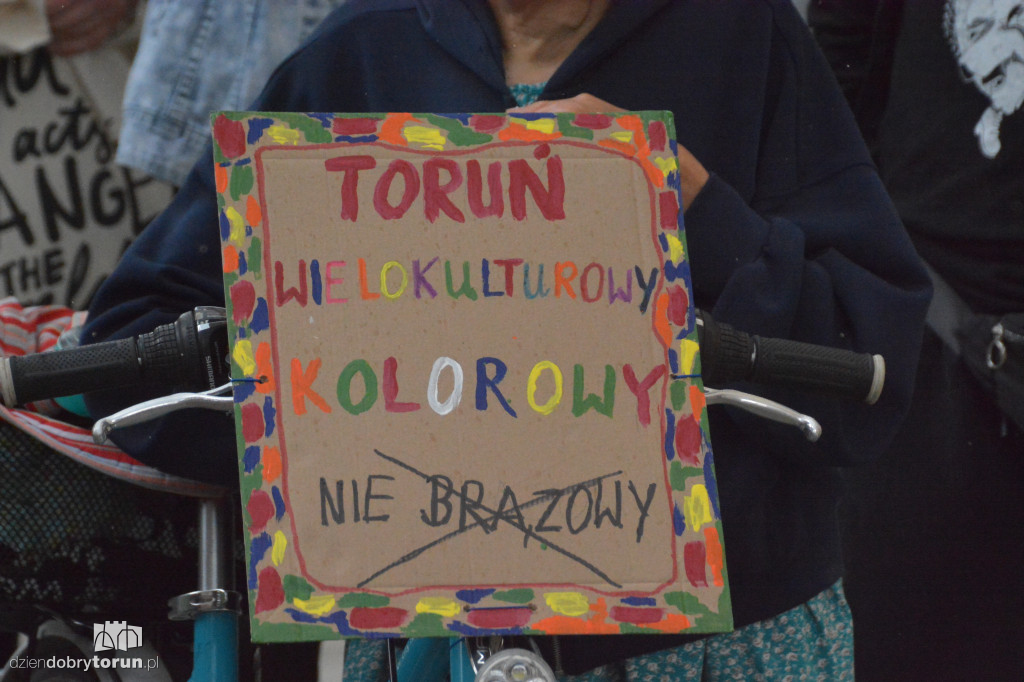 TORUŃ
WIELOKULTUROWY
KOLOROWY
NIE BRĄZOWY
acts
THE
dziendobrytorun.pl